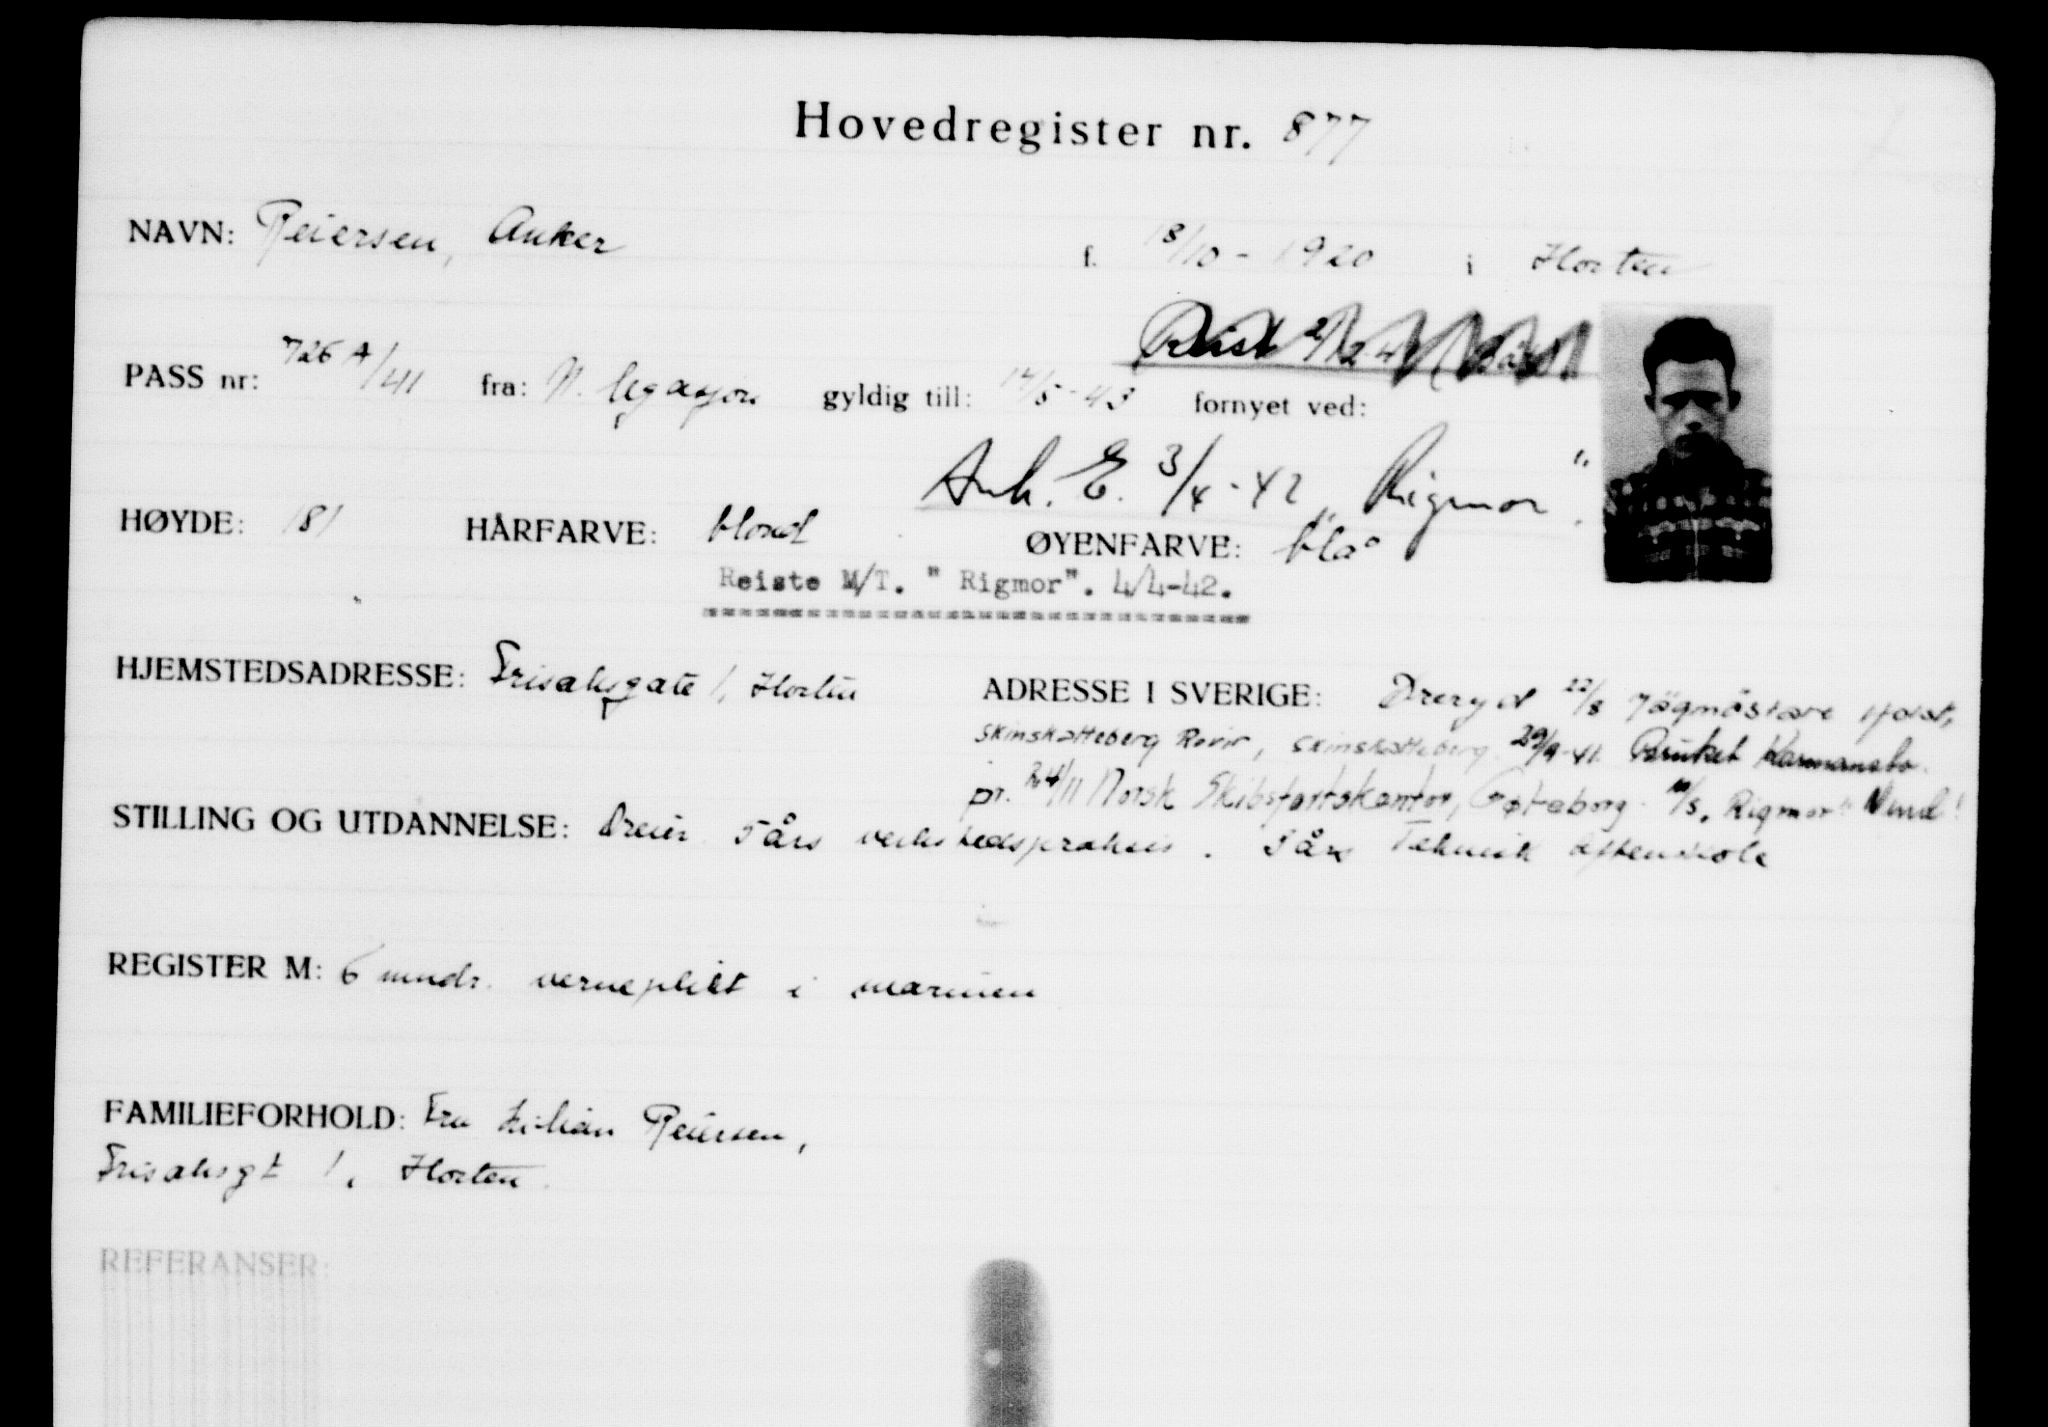 Hovedregister nr. 877
NAVN: Reiersen, Anker f. 18/10 - 1920 i Horten
Reist
PASS nr: 726 A/41 fra: N. legasjon gyldig till: 14/5-43 fornyet ved:
Ank. E. 3/4-42 „Rigmor".
HØYDE: 181 HÅRFARVE: blond ØYENFARVE: blå
Reiste M/T. " Rigmor". 4/4-42.
HJEMSTEDSADRESSE: gate 1, Horten ADRESSE I SVERIGE: Öreryd 22/8 Jägmästare
Skinskatteberg Revir, Skinskatteberg. 29/9-41. Bruket Karmansbo.
pr. 24/11 Norsk Skibsfartskontor, Gøteborg. „Rigmor"
STILLING OG UTDANNELSE: Dreier. 5 års verkstedspraksis. 3 års Teknisk aftenskole
REGISTER M: 6 mndr. verneplikt i marinen
FAMILIEFORHOLD: Fru Lilian Reiersen,
1, Horten.
REFERANSER: